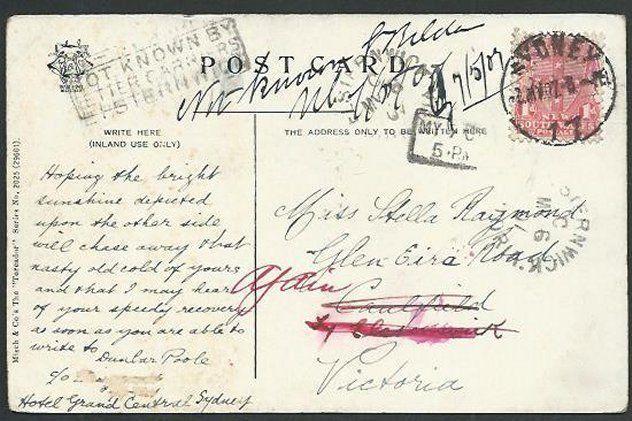 NOT KNOWN BY
LETTER CARRIERS
POST CARD.
Not known
St Kilda
7/5/07
SYDNEY
WRITE HERE
(INLAND USE ONLY)
THE ADDRESS ONLY TO BE WRITTEN HERE
5·PM
Hoping the bright
sunshine depicted
upon the other side
will chase away that
nasty old cold of yours
and that I may hear
of your speedy recovery
as soon as you are able to
write to
Dunbar Poole
c/o
Hotel Grand Central Sydney
Miss Stella Raymond
Glen Eira Road
again
Caulfield
Victoria
STERNWICK
Misch & Co's The "Turnador" Series No. 2025 (29601).